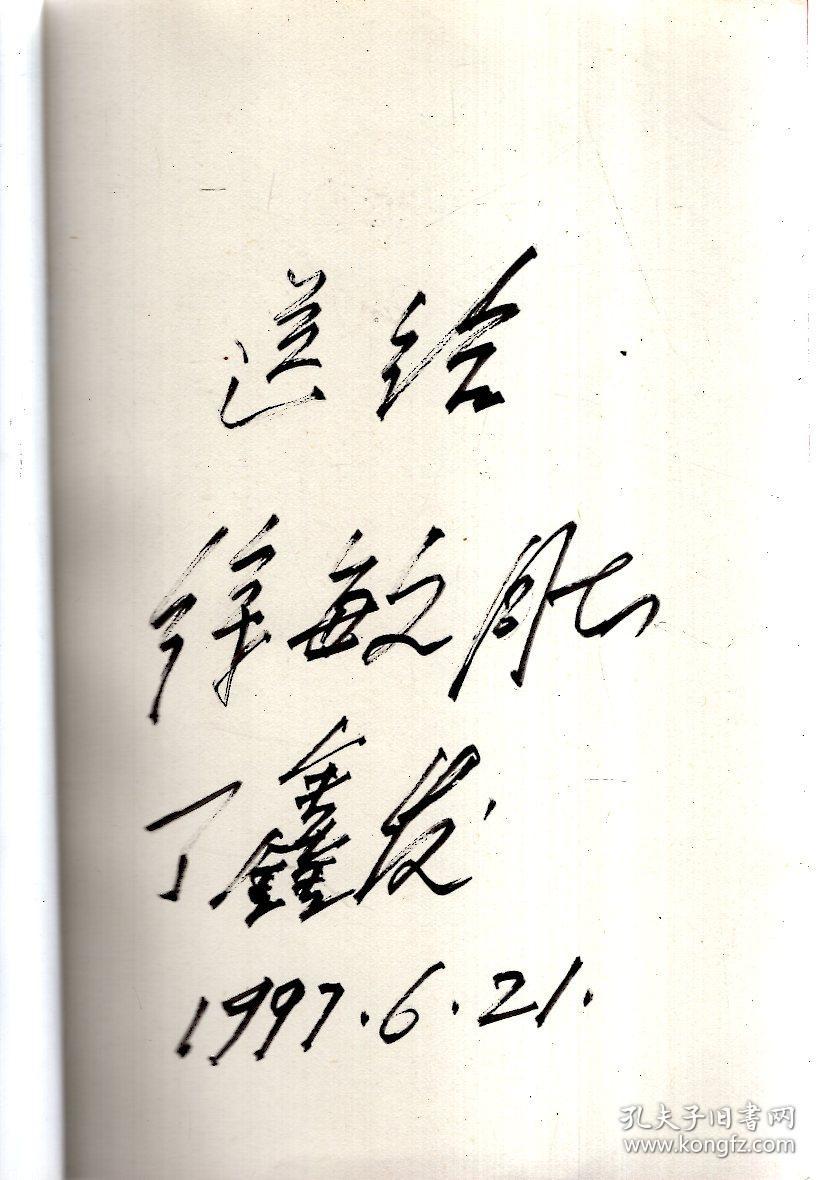 送给
徐敏同志
丁鑫发
1997.6.21.
孔夫子旧书网
www.kongfz.com